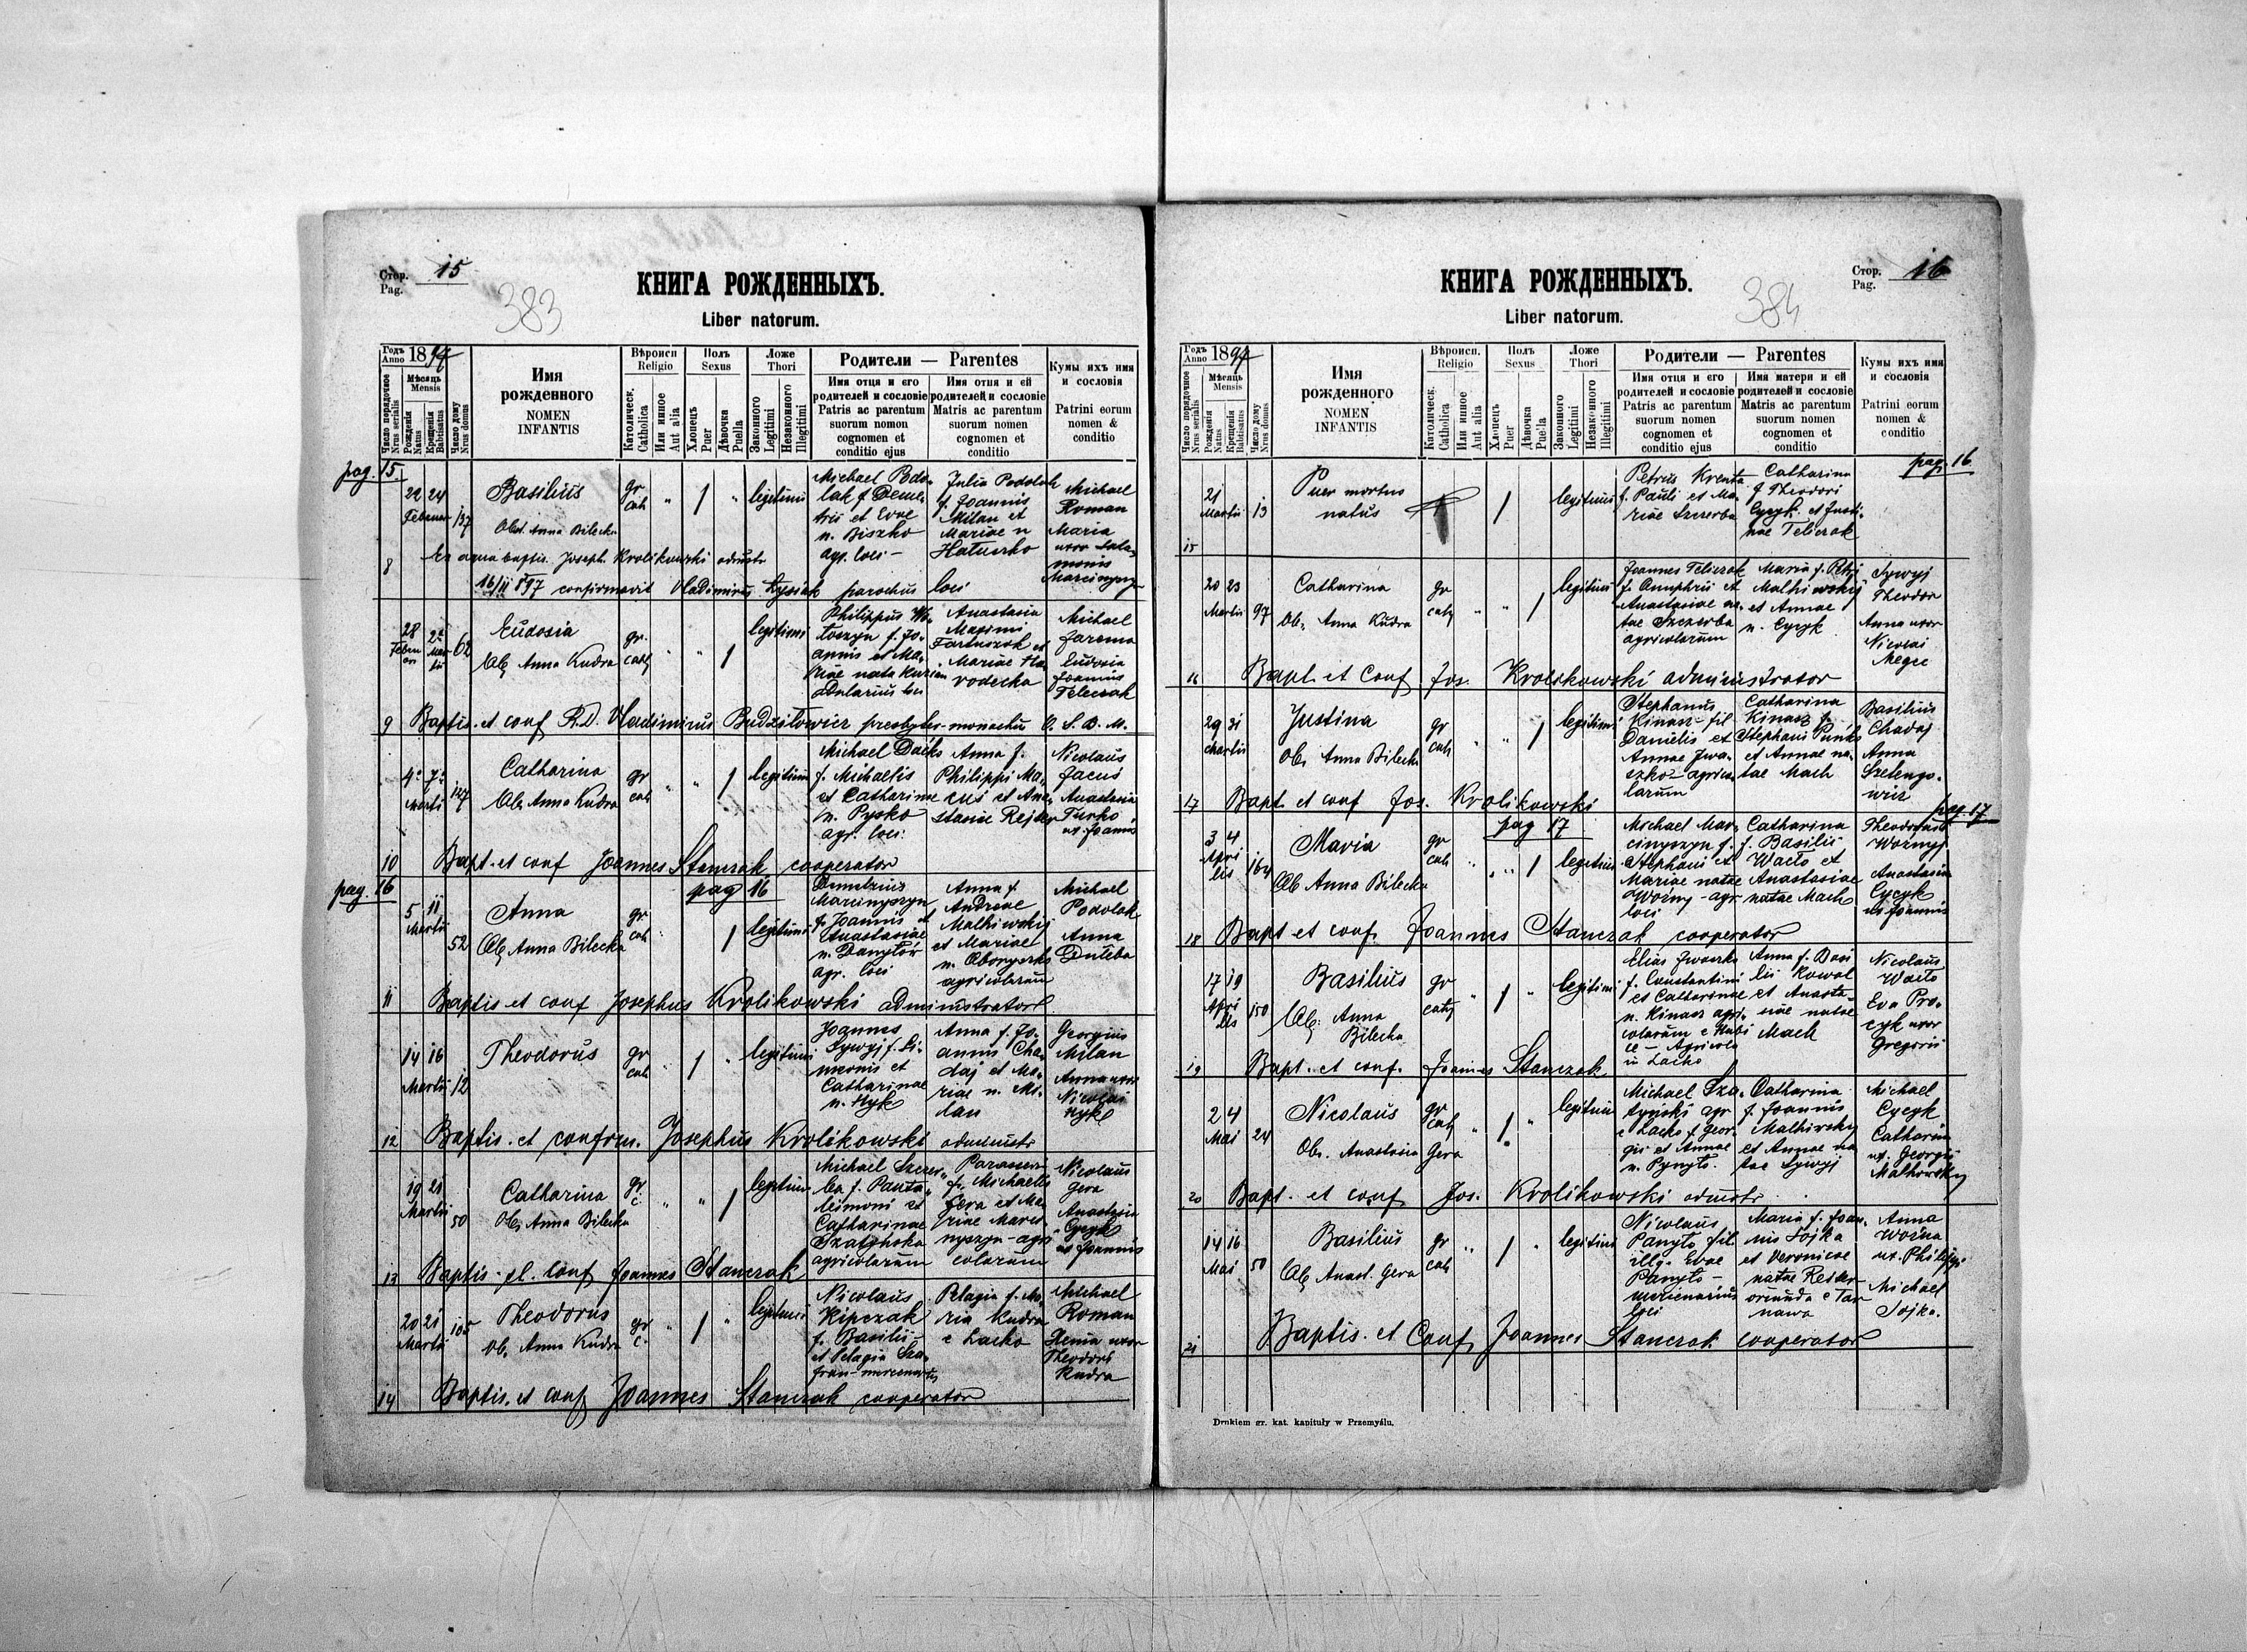 Стор. 15
Pag.
383
КНИГА РОЖДЕННЫХЪ.
Liber natorum.
Годъ Anno 1897
Мѣсяць Mensis
Число порядочное Nrus serialis
Рождення Natus
Крещенія Babtisatus
Число дому Nrus domus
Имя рожденного
NOMEN INFANTIS
Вѣроисп Religio
Католическ. Catholica
Или инное Aut alia
Полъ Sexus
Хлопець Puer
Дѣвочка Puella
Ложе Thori
Законного Legitimi
Незаконного Illegitimi
Родители — Parentes
Имя отця и его родителей и сословіе
Patris ac parentum suorum nomon cognomen et conditio ejus
Имя отця и ей родителей и сословіе
Matris ac parentum suorum nomen cognomen et conditio
Кумы ихъ имя и сословія
Patrini eorum nomen & conditio
pag. 15
22 24
Februar 137
Basilius
Obst. Anna Bilecka
gr cath
" 1 "
legitimi
Michael Podo-
lak f. Deme-
trii et Evae
n. Biszko
agr. loci -
Julia Podolak
f. Joannis
Milan et
Mariae n
Hatuszko
Michael
Roman
Maria
uxor Salo-
monis
Marcinyszyn
8 Ex aqua baptis. Joseph. Krolikowski admstr
16/II 897 confirmavit Vladimirus Lysiak parochus loci
28 2
62
Eudosia
Ob. Anna Kudra
gr. cath
" " 1
legitimi
Philippus Wo-
toszyn f. Jo-
annis et Ma-
riae nata
Anastasia
Maximi
et
Mariae Ha-
vodecka
Michael
Jarema
Eudosia
Joannis
Teliczak
9 Baptis. et conf R.D. Vladimirus Budzilowicz presbyter-monachus O.S.B.M.
4 7
Martii 127
Catharina
Ob. Anna Kudra
gr cath
" " 1
legitimi
Michael Dacko
f. Michaelis
et Catharinae
n. Pysko
agr. loci.
Anna f.
Philippi Ma-
cus et Ana-
stasiae Rejter
Nicolaus
Jacus
Anastasia
Turko
ux. Joannis
10 Bapt. et conf Joannes Stanczak cooperator
pag. 16
pag 16
5 11
Martii
52
Anna
Ob. Anna Bilecka
gr cath
" 1
legitimi
Demetrius
Marcinyszyn
f. Joannis et
Anastasiae
n. Danyłów
agr. loci
Anna f.
Andreae
Malhiwskij
et Mariae
n.
agricolarum
Michael
Podolak
Anna
Duleba
11 Baptis et conf Josephus Krolikowski administrator
14 16
Martii 12
Theodorus
gr cath
" 1 "
legitimi
Joannes
Lywyj f. Si-
meonis et
Catharinae
n. Hyk
Anna f. Jo-
annis Cha-
daj et Ma-
riae n. Mi-
lan
Georgius
Milan
Anna uxor
Nicolai
Hyk
12 Baptis. et confrm. Josephus Krolikowski admnistr
19 21
Martii
50
Catharina
Ob. Anna Bilecka
gr. c.
" " 1
legitimi
Michael Szczer-
ba f. Panta-
leimoni et
Catharinae
agricolarum
Parasceva
f. Michaelis
Gera et Ma-
riae Marci-
nyszyn - agri
colarum
Nicolaus
Gera
Anastasia
Cycyk
ux Joannis
13 Baptis. et. Conf Joannes Stanczak
20 21
Martii 105
Theodorus
Ob. Anna Kudra
gr c.
" 1 "
legitimi
Nicolaus
Kipczak
f. Basilii
et Pelagia Sza-
fran - mercenarius
Pelagia f. Ma-
ria Kudra
e Lacko
Michael
Roman
Xenia uxor
Theodori
Kudra
14 Baptis. et conf Joannes Stanczak cooperator
Стор. 16
Pag.
384
КНИГА РОЖДЕННЫХЪ.
Liber natorum.
Годъ Anno 1897
Мѣсяць Mensis
Число порядочное Nrus serialis
Рожденія Natus
Крещенія Babtisatus
Число дому Nrus domus
Имя рожденного
NOMEN INFANTIS
Вѣроисп. Religio
Католическ. Catholica
Или инное Aut alia
Полъ Sexus
Хлопець Puer
Дѣвочка Puella
Ложе Thori
Законного Legitimi
Незаконного Illegitimi
Родители — Parentes
Имя отця и его родителей и сословіе
Patris ac parentum suorum nomen cognomen et conditio ejus
Имя матери и ей родителей и сословіе
Matris ac parentum suorum nomen cognomen et conditio
Кумы ихъ имя и сословія
Patrini eorum nomen & conditio
pag. 16
21
Martii 13
Puer mortuo
natus
1
legitimi
Petrus Krenta
f. Pauli et Ma-
riae Szczerba
Catharina
f Theodori
Cycyk et Justi-
nae Teliczak
15
20 23
Martii 97
Catharina
Ob. Anna Kudra
gr cath
" " 1
legitimi
Joannes Teliczak
f. Onuphrii et
Anastasiae na-
tae Szczerba
agricolarum
Maria f. Petri
Malhiwskij
et Annae
n. Cycyk
Lywyj
Theodor
Anna uxor
Nicolai
Megec
16 Bapt. et Conf Jos. Krolikowski administrator
29 31
Martii
Justina
Ob. Anna Bilecka
gr cath
" " 1
legitimi
Stephanus
Kinasz - fil
Danielis et
Annae Iwa-
szko - agrico-
larum
Catharina
Kinasz f.
Stephani Punko
et Annae na-
tae Mach
Basilius
Chadaj
Anna
Szelengo-
wicz
17 Bapt. et conf Jos. Krolikowski
pag 17
pag. 17
3 4
Aprilis 164
Maria
Ob Anna Bilecka
gr cath
" " 1
legitimi
Michael Mar-
cinyszyn f.
Stephani et
Mariae natae
Woźny - agr
loci
Catharina
f. Basilii
Wacło et
Anastasiae
natae Mach
Theodorus
Woźnyj
Anastasia
Cycyk
ux Joannis
18 Bapt et conf. Joannes Stanczak cooperator
17 19
Aprilis 150
Basilius
Ob. Anna
Bilecka
gr cath
" 1 "
legitimi
Elias Iwaszko
f. Constantini
et Catharinae
n. Kinasz agri-
colarum e
- Agricola
in Lacko
Anna f. Basi
lii Kowal
et Anasta-
siae natae
Mach
Nicolaus
Wacło
Eva Pro-
cyk uxor
Gregorii
19 Bapt. et conf. Joannes Stanczak
2 4
Mai 24
Nicolaus
Ob. Anastasia Gera
gr cath
" 1 "
legitimi
Michael Sza-
agr
e Lacko f. Geor-
gii et Annae
n. Pynyło.
Catharina
f. Joannis
Malhiwsky
et Annae na
tae Lywyj
Michael
Cycyk
Catharina
ux. Georgii
Malhowsky
20 Bapt. et conf Jos. Krolikowski admstr
14 16
Mai 50
Basilius
Ob. Anast. Gera
gr cath
" 1 "
legitimi
Nicolaus
Panyło fil
illg. Evae
Panyło -
mercenarius
loci
Maria f. Joan-
nis Sojka
et Veronicae
natae Reiter
oriunda e Tar
nawa
Anna
Woźna
ux. Philippi
Michael
Sojka.
21 Baptis. et Conf Joannes Stanczak cooperator
Drukiem gr. kat. kapituły w Przemyślu.